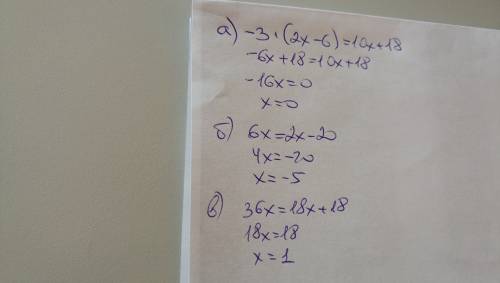 а) -3·(2x-6)=10x+18
-6x+18=10x+18
-16x=0
x=0
б) 6x=2x-20
4x=-20
x=-5
в) 36x=18x+18
18x=18
x=1